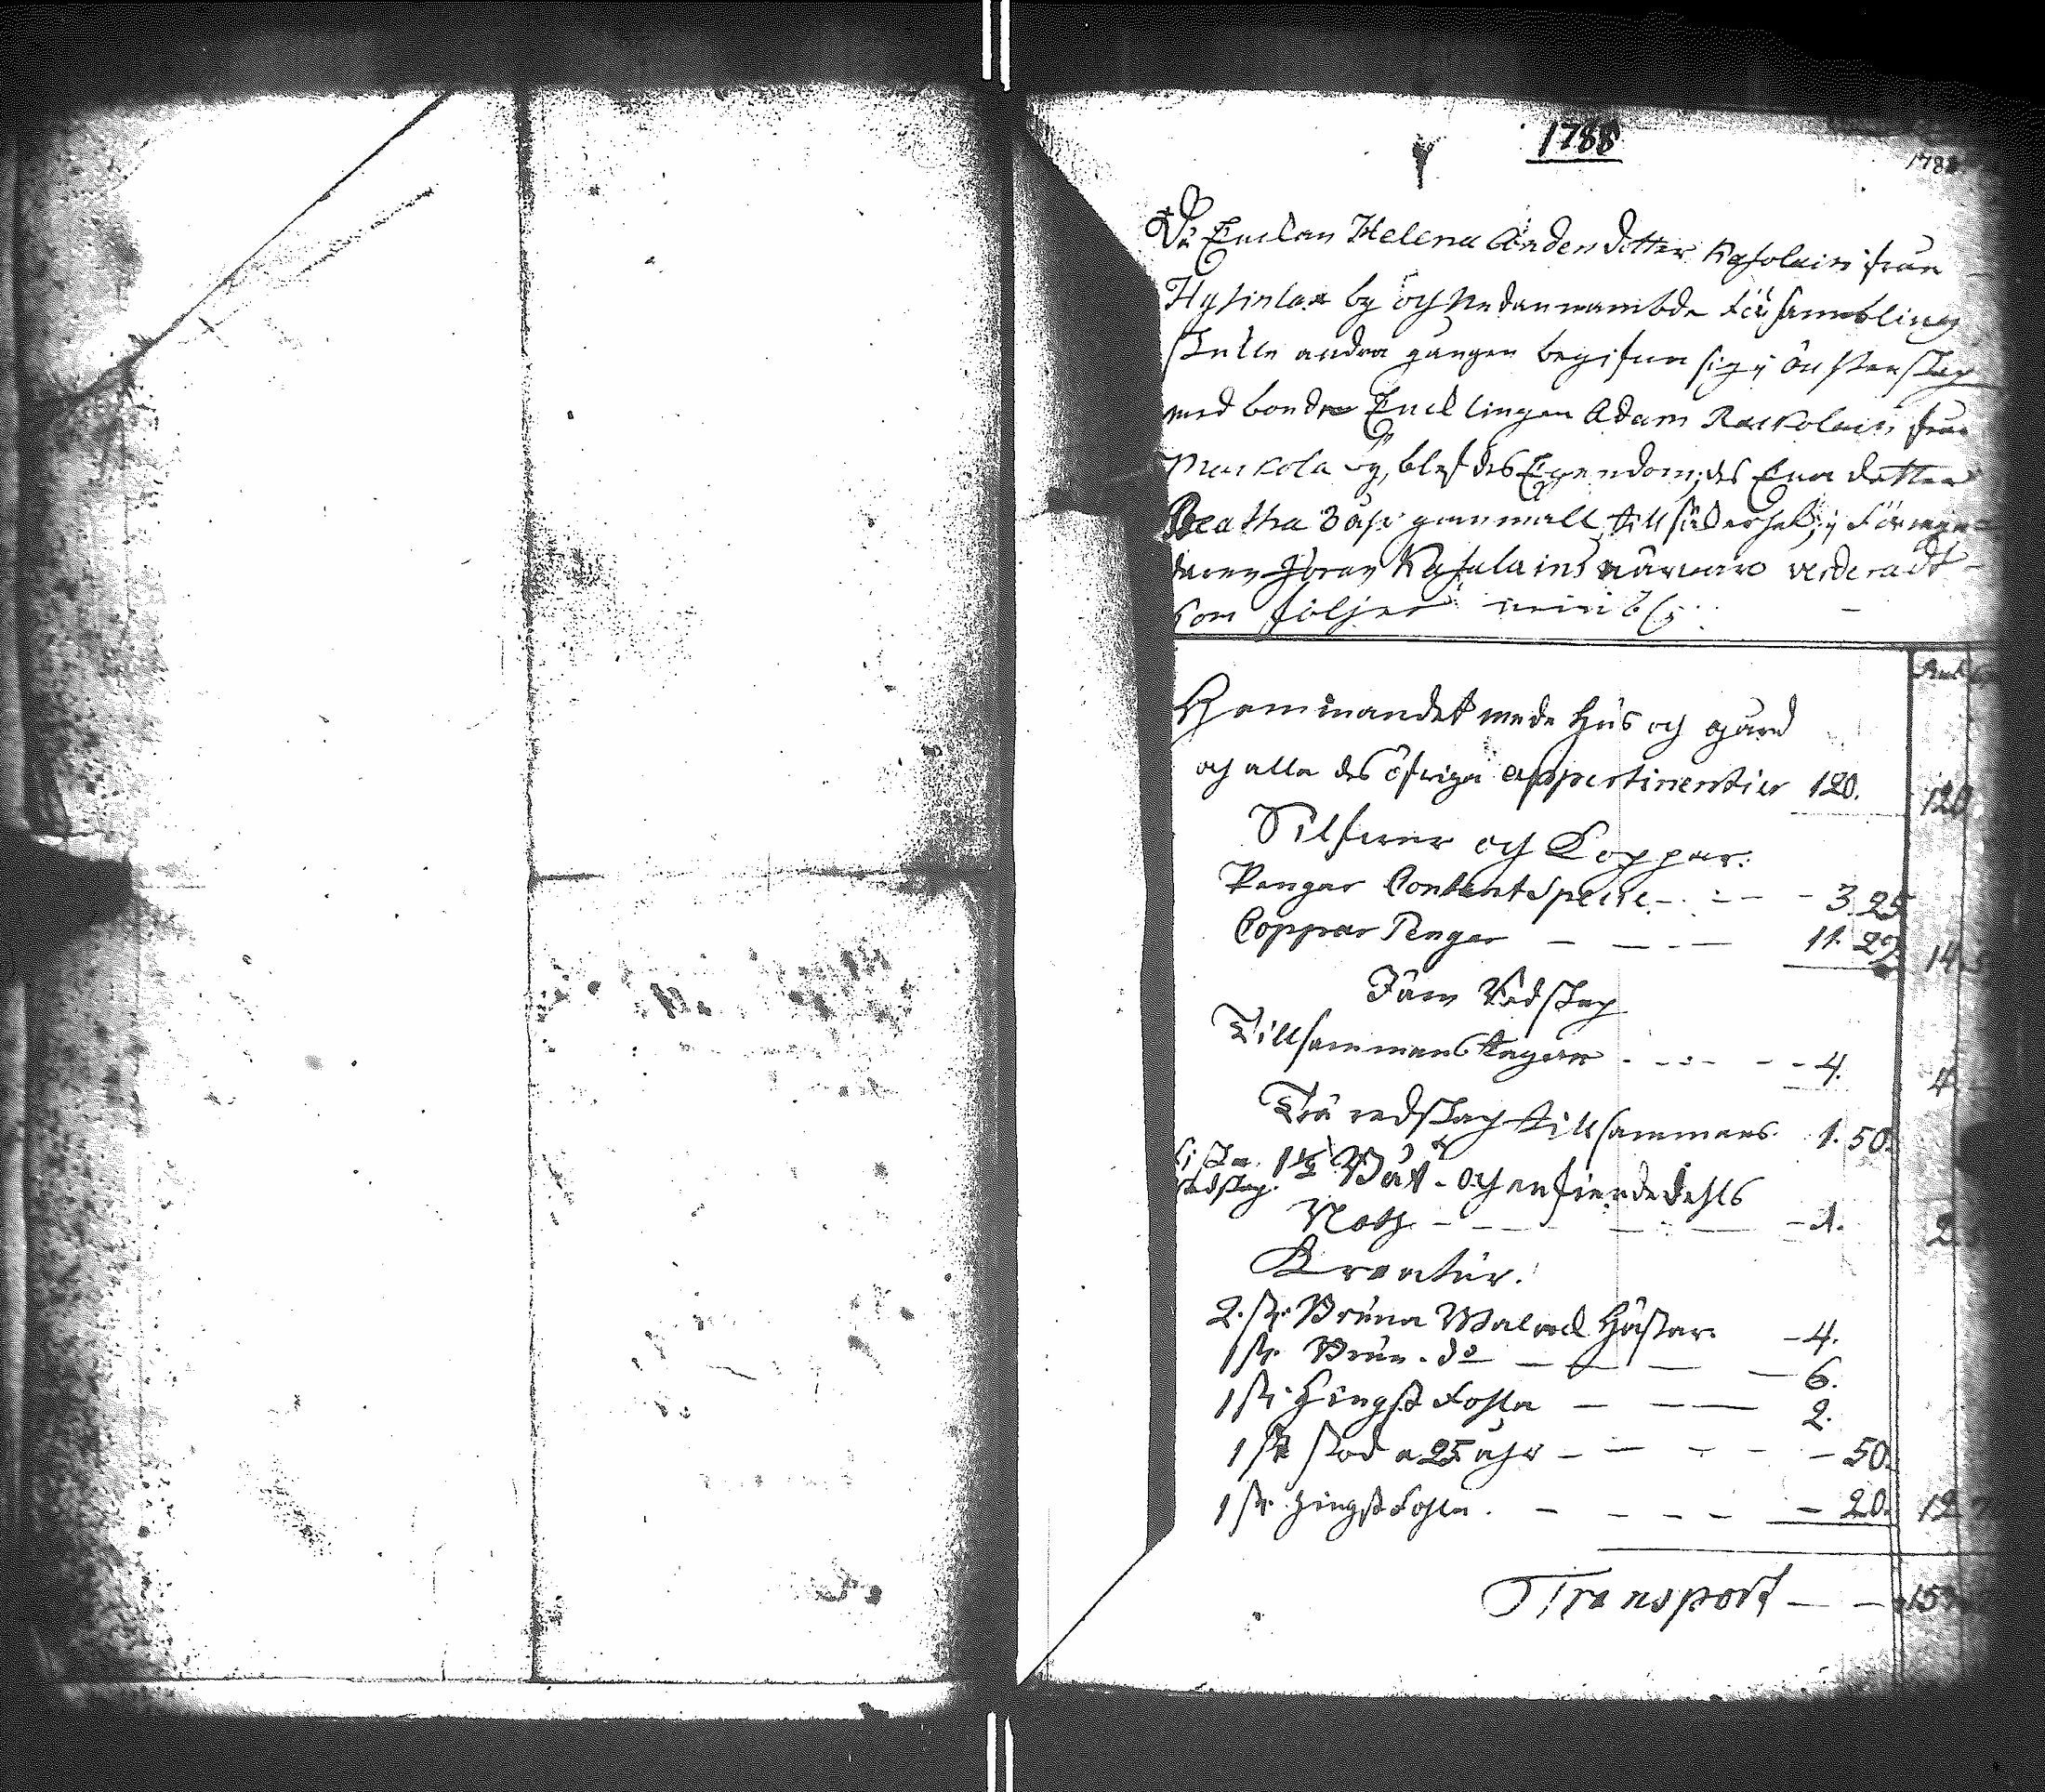 1788
1788
Då Enckan Helena Anders dotter Kaholain från
Hysinlax by och Nedannambde Försambling
skulle andra gången begifva sig i Ächtenskap
med bonde Encklingen Adam Raskolain från
Muskola by, blef des Egendom; des Ena dotter
Beatha 3 åhr gammall till säkerhet; i Förmyn=
daren Jöran Kaholains närvaro verderadt
som följer
Hemmandet med Hus och gård
och alla des öfriga appertinentier 120. 120
Silfver och Koppar.
Pengar Contant Specie - - - 3. 25
Coppar Pengar - - - 11. 29 14
Järn Redskap
Tillsammans tagen - - - 4. 4
Trä redskap tillsammans 1. 50.
Fiske redskap. 1 1/2 Båt - och en fierdedehls
Noth - - - 1. 2
Kreatur.
2. st. Bruna Walack Hästar - 4.
1 st. Brun do - - - 6.
1 st. Hingst Fohla - - - 2.
1 st stod a 25 åhr - - - 50.
1 st. hingst Fohla - - - 20. 12
Transport - - 15